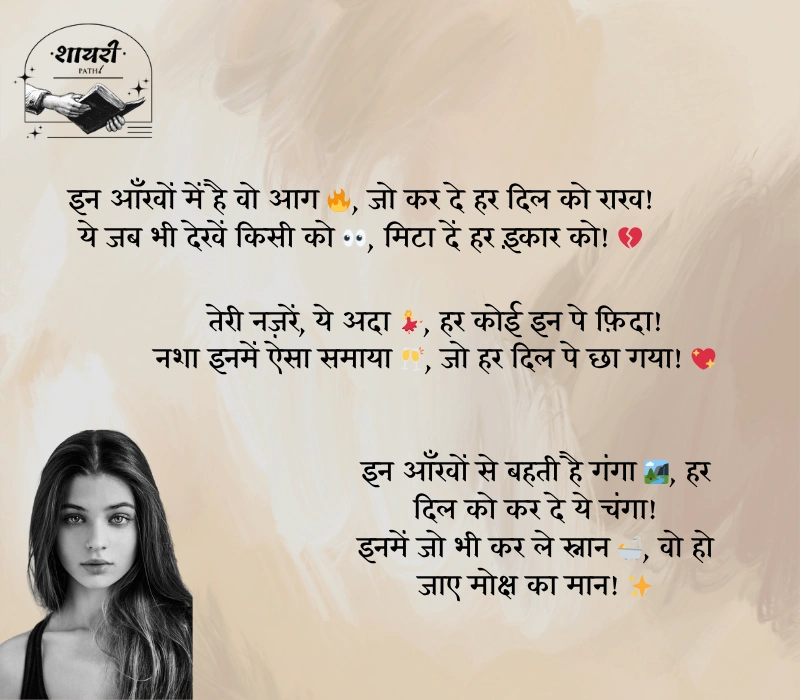 शायरी
PATH
इन आँखों में है वो आग 🔥, जो कर दे हर दिल को राख!
ये जब भी देखें किसी को 👀, मिटा दें हर इकार को! 💔
तेरी नज़रें, ये अदा 💃, हर कोई इन पे फ़िदा!
नशा इनमें ऐसा समाया 🥂, जो हर दिल पे छा गया! 💖
इन आँखों से बहती है गंगा 🏞️, हर
दिल को कर दे ये चंगा!
इनमें जो भी कर ले स्नान 🛁, वो हो
जाए मोक्ष का मान! ✨